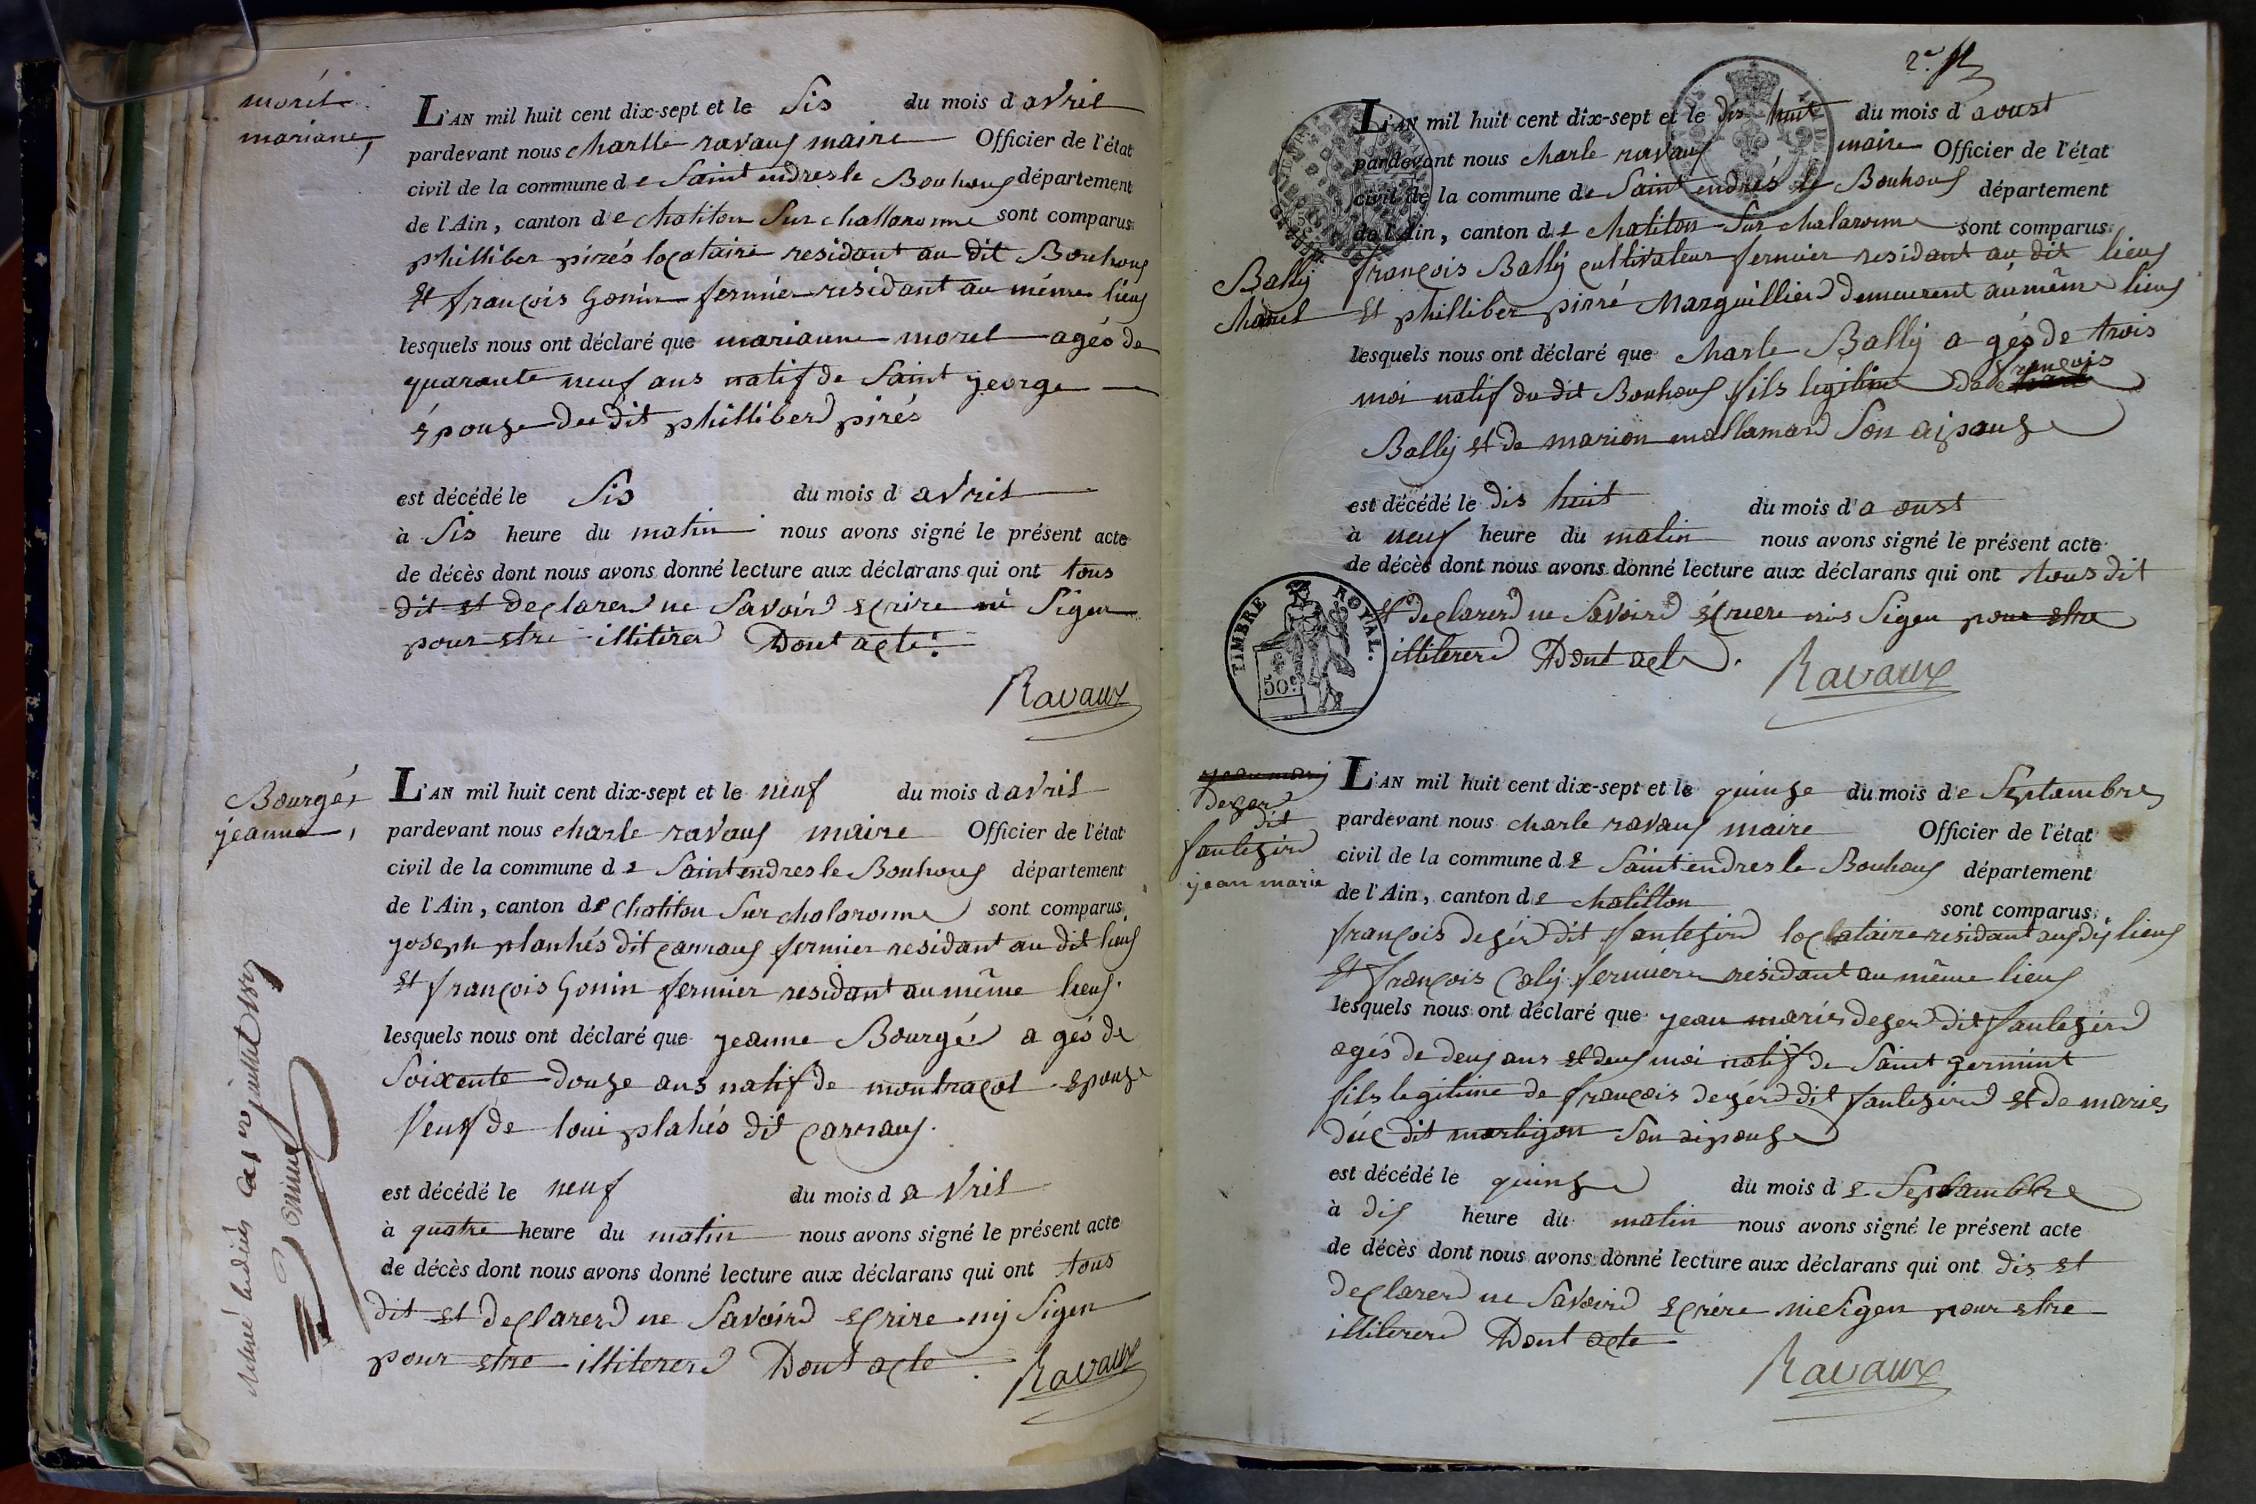 morel
mariane,
L'AN mil huit cent dix-sept et le Sis du mois d avril
pardevant nous charlle ravaus maire Officier de l'état
civil de la commune d e Saint endres le Bouhous département
de l'Ain, canton d e chatiton Sur challaronne sont comparus
philliber pirés locataire residant au dit Bouhous
et françois Gonin fermier residant au même lieus
lesquels nous ont déclaré que marianne morel agés de
quarante neuf ans natif de Saint jeorge
épouse du dit philliber pirés
est décédé le Sis du mois d avril
à Sis heure du matin nous avons signé le présent acte
de décès dont nous avons donné lecture aux déclarans qui ont tous
dit et declarer ne Savoir ecrire ni Sigen
pour etre illiterer Dont acte.
Ravaux
Bourgés
jeanne,
L'AN mil huit cent dix-sept et le neuf du mois d avril
pardevant nous charle ravaus maire Officier de l'état
civil de la commune d e Saint endres le Bouhous département
de l'Ain, canton de Chatiton Sur chalaronne sont comparus
joseph planhés dit carraus fermier residant au dit lieus
et françois Gonin fermier residant au même lieus.
lesquels nous ont déclaré que jeanne Bourgés a gés de
Soixente douse ans natif de montracol epouse
veuf de loui plahés dit carraus.
est décédé le neuf du mois d avril
à quatre heure du matin nous avons signé le présent acte
de décès dont nous avons donné lecture aux déclarans qui ont tous
dit et declarer ne Savoir ecrire nij Sigen
pour etre illiterer Dont acte.
Ravaux
2e
L'AN mil huit cent dix-sept et le dis huit du mois d aoust
pardevant nous charle ravaus maire Officier de l'état
civil de la commune de Saint endrés le Bouhous département
de l'Ain, canton d e chatiton Sur chalaronne sont comparus
Ballij
charel
françois Ballij cultivateur fermier residant au dit lieus
et philliber pirré Marguillier demeurent au même lieus
lesquels nous ont déclaré que charle Ballij a gés de trois
françois
moi natif du dit Bouhous fils legitime de
Ballij et de marion mallamard Son aipouse
est décédé le dis huit du mois d'a oust
à neuf heure du matin nous avons signé le présent acte
de décès dont nous avons donné lecture aux déclarans qui ont tous dit
et declarer ne Savoir écriere nis Sigen pour etre
illiterer Dont acte.
TIMBRE ROYAL.
50c
Ravaux
jean mari
deser
dit
fantesin
jean marie
L'AN mil huit cent dix-sept et le quinse du mois d e Septambre
pardevant nous charle ravaus maire Officier de l'état
civil de la commune d e Saint endres le Bouhous département
de l'Ain, canton d e chatillon sont comparus
françois desér dit fantesin locataire residant aus dij lieus
et françois Calij fermier residant au même lieus
lesquels nous ont déclaré que jean maries deser dit fantesin
agés de deus ans et deus moi natif de Saint germint
fils legitime de françois desér dit fantesin et de maries
duc dit marligon Son aipouse
est décédé le quinse du mois d e Septambre
à dis heure du matin nous avons signé le présent acte
de décès dont nous avons donné lecture aux déclarans qui ont dis et
declarer ne Savoir ecrire nie Sigen pour etre
illiterer Dont acte
Ravaux